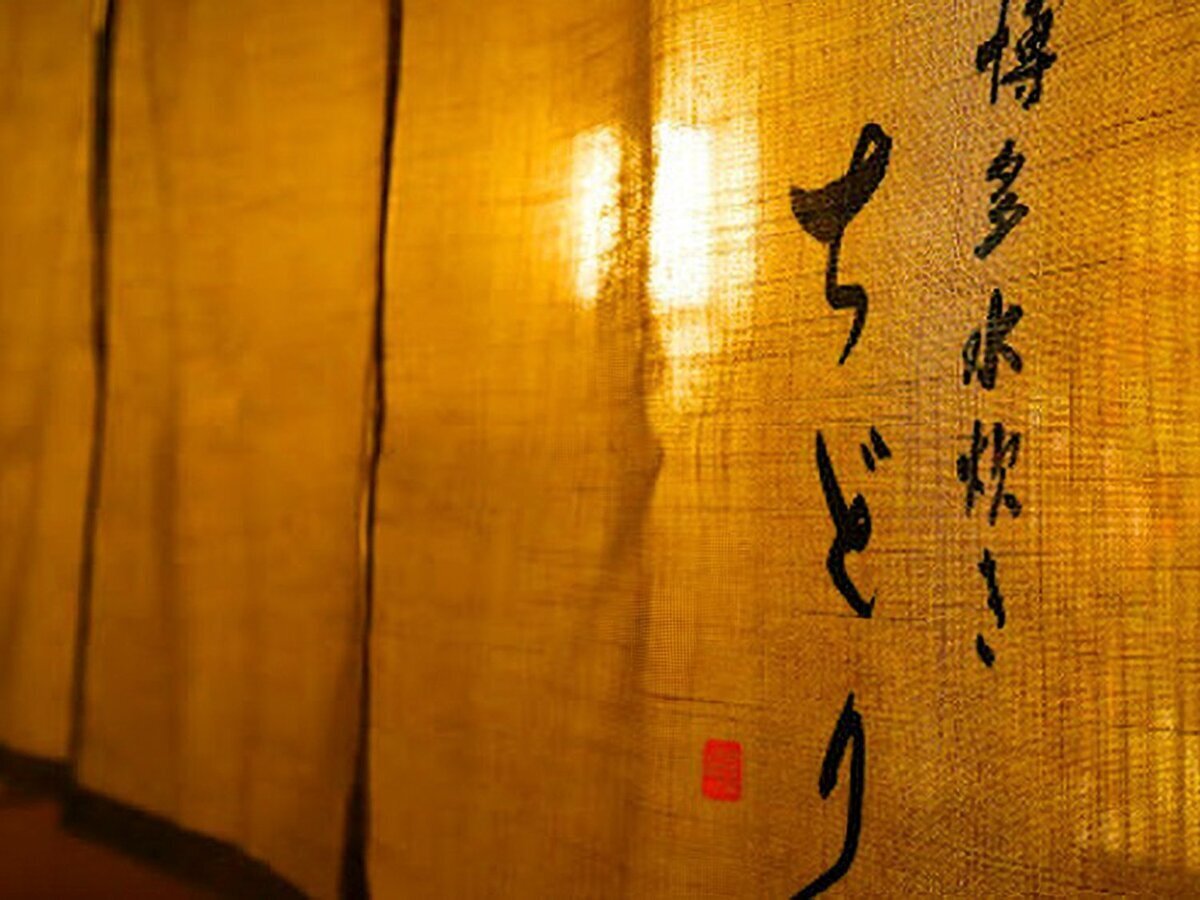 博多水炊き
ちどり